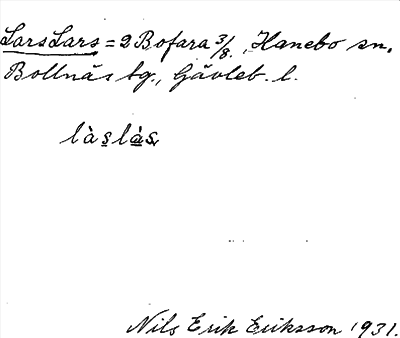 Lars Lars = 2 Bofara 3/8., Hanebo sn.
Bollnäs tg., Gävleb. l.
làslàs,
Nils Erik Eriksson 1931.